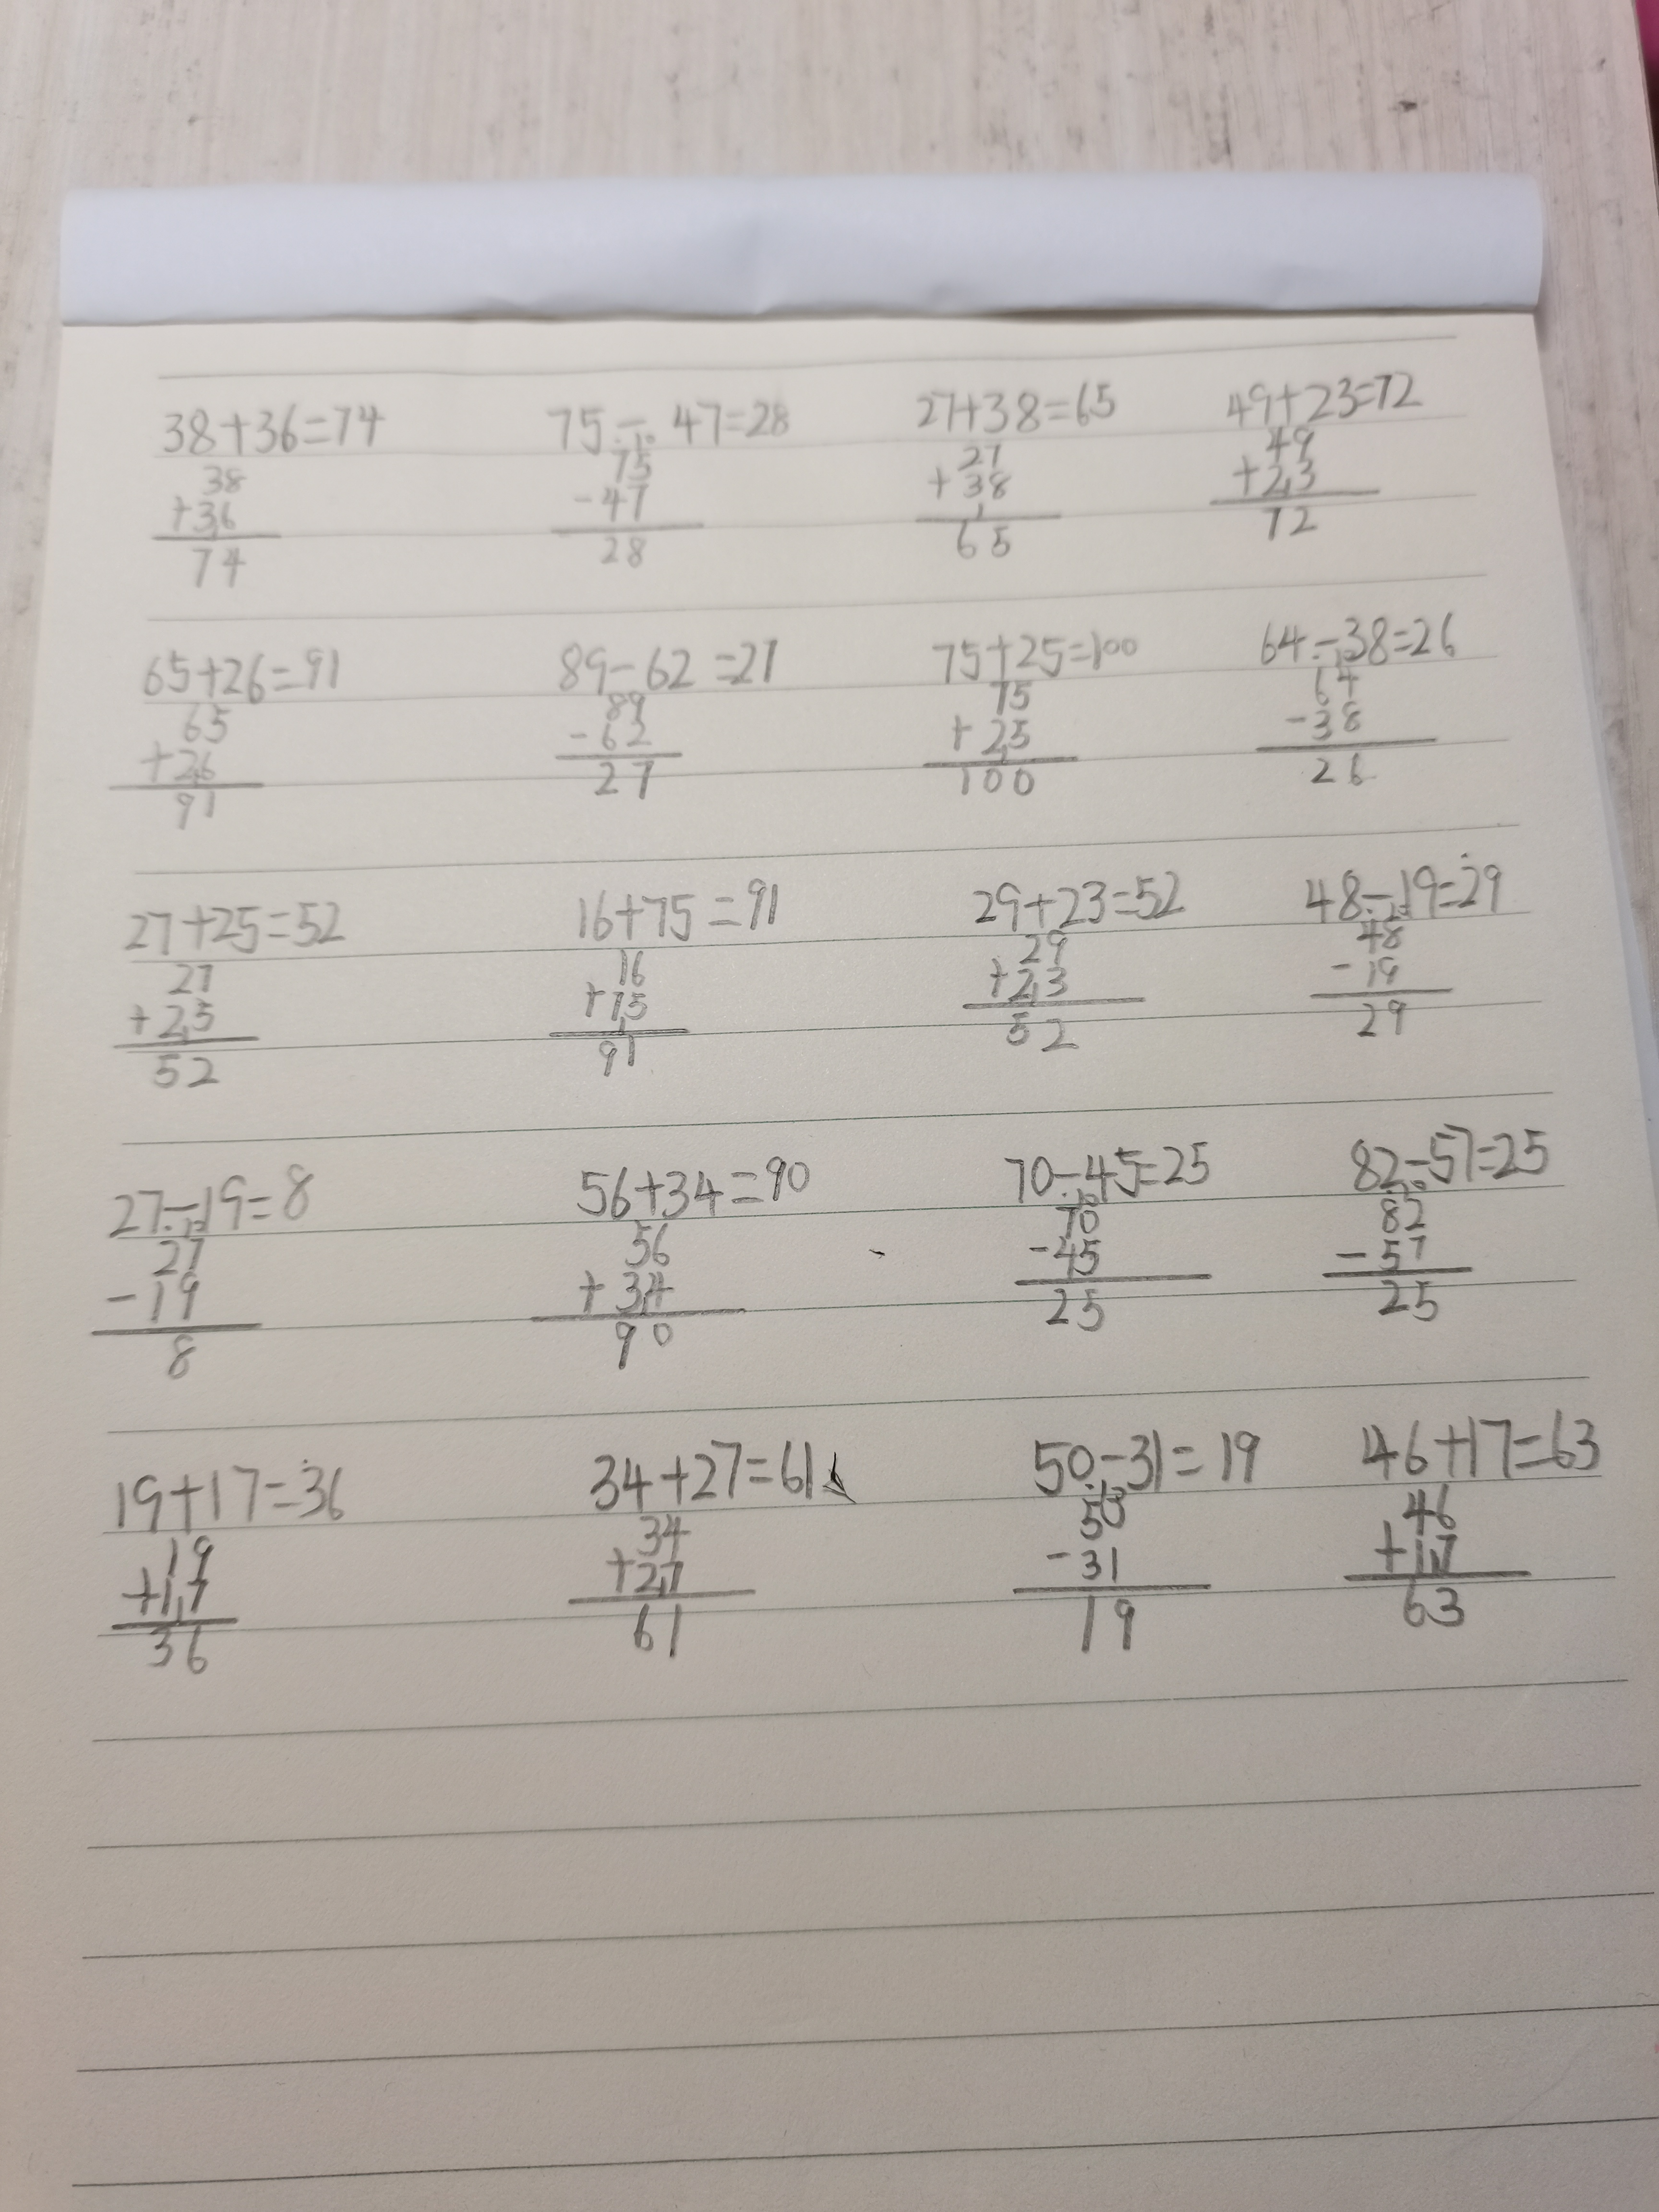 38+36=74 75-47=28 27+38=65 49+23=72
38 75 27 49
+36 -47 +38 +23
74 28 65 72
65+26=91 89-62=27 75+25=100 64-38=26
65 89 75 64
+26 -62 +25 -38
91 27 100 26
27+25=52 16+75=91 29+23=52 48-19=29
27 16 29 48
+25 +75 +23 -19
52 91 52 29
27-19=8 56+34=90 70-45=25 82-57=25
27 56 70 82
-19 +34 -45 -57
8 90 25 25
19+17=36 34+27=61 50-31=19 46+17=63
19 34 50 46
+17 +27 -31 +17
36 61 19 63